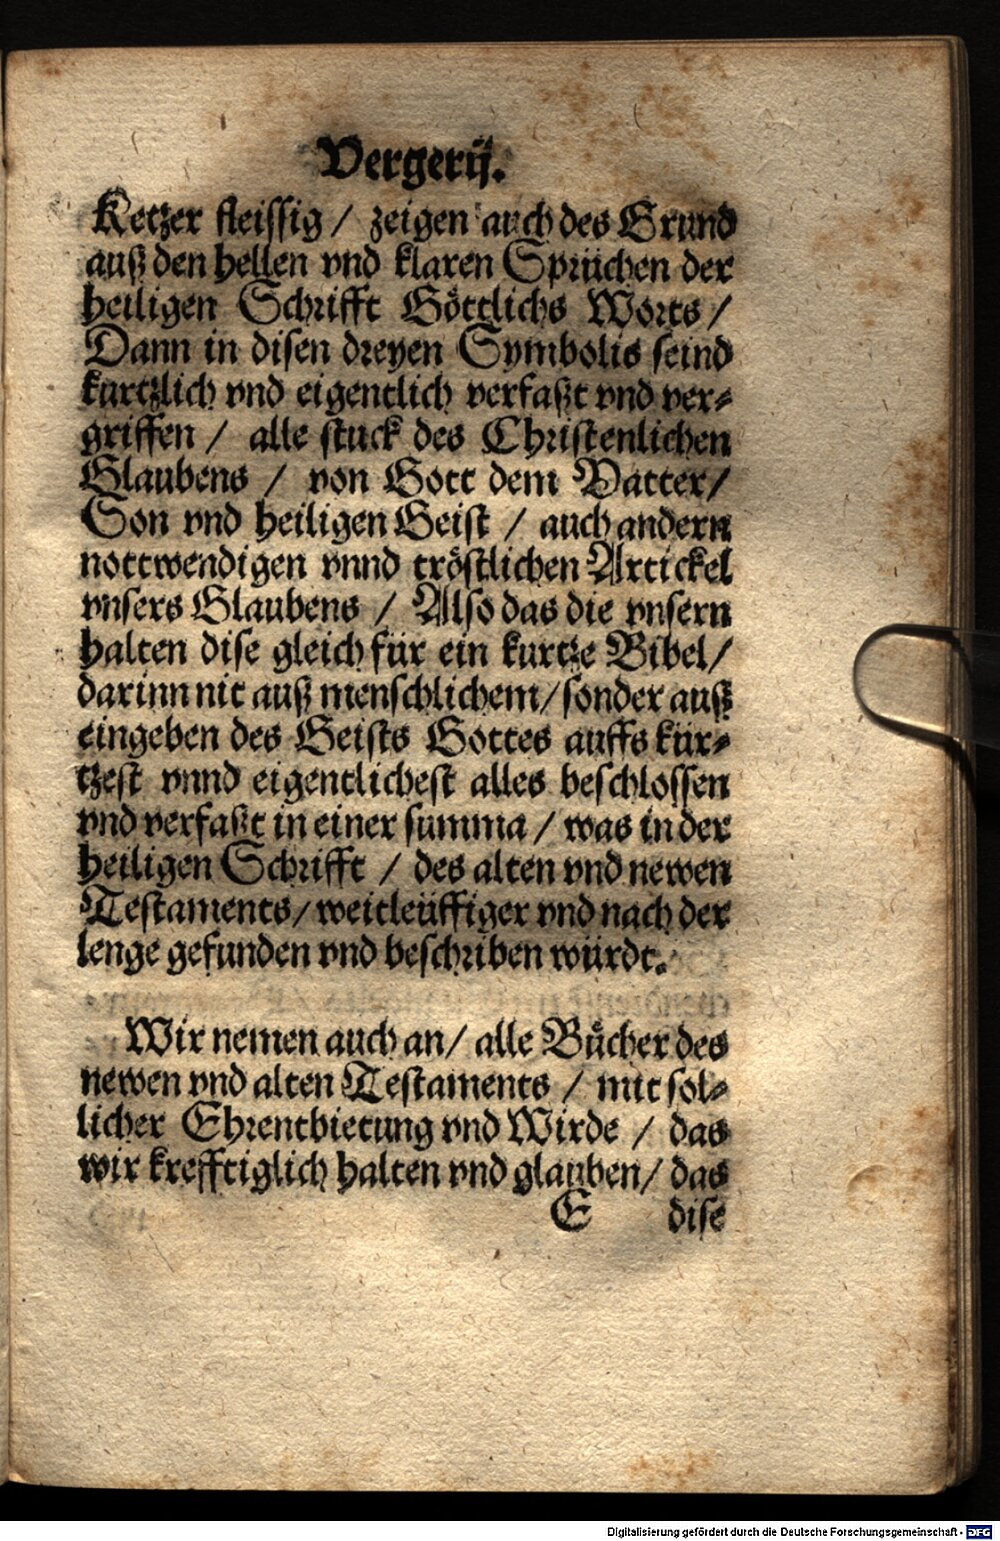 Vergerij.
Ketzer fleissig / zeigen auch des Grund
auß den hellen vnd klaren Sprüchen der
heiligen Schrifft Göttlichs Worts /
Dann in disen dreyen Symbolis seind
kurtzlich vnd eigentlich verfaßt vnd ver⸗
griffen / alle stuck des Christenlichen
Glaubens / von Gott dem Vatter/
Son vnd heiligen Geist / auch andern
nottwendigen vnnd tröstlichen Artickel
vnsers Glaubens / Also das die vnsern
halten dise gleich für ein kurtze Bibel/
darinn nit auß menschlichem/ sonder auß
eingeben des Geists Gottes auffs kür⸗
tzest vnnd eigentlichest alles beschlossen
vnd verfaßt in einer summa / was in der
heiligen Schrifft / des alten vnd newen
Testaments/ weitleüffiger vnd nach der
lenge gefunden vnd beschriben würdt.
Wir nemen auch an/ alle Bücher des
newen vnd alten Testaments / mit sol⸗
licher Ehrentbietung vnd Wirde / das
wir krefftiglich halten vnd glauben/ das
E dise
Digitalisierung gefördert durch die Deutsche Forschungsgemeinschaft - DFG